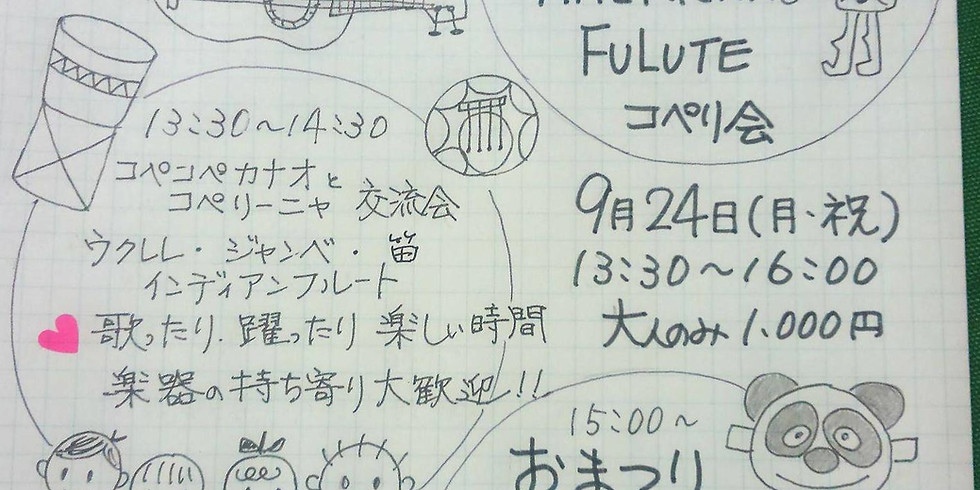 FULUTE
コペリ会
13:30〜14:30
コペコペカナオと
コペリーニャ 交流会
ウクレレ・ジャンベ・笛
インディアンフルート
歌ったり、躍ったり 楽しい時間
楽器の持ち寄り大歓迎!!
9月24日(月・祝)
13:30〜16:00
大人のみ 1.000円
15:00〜
おまつり